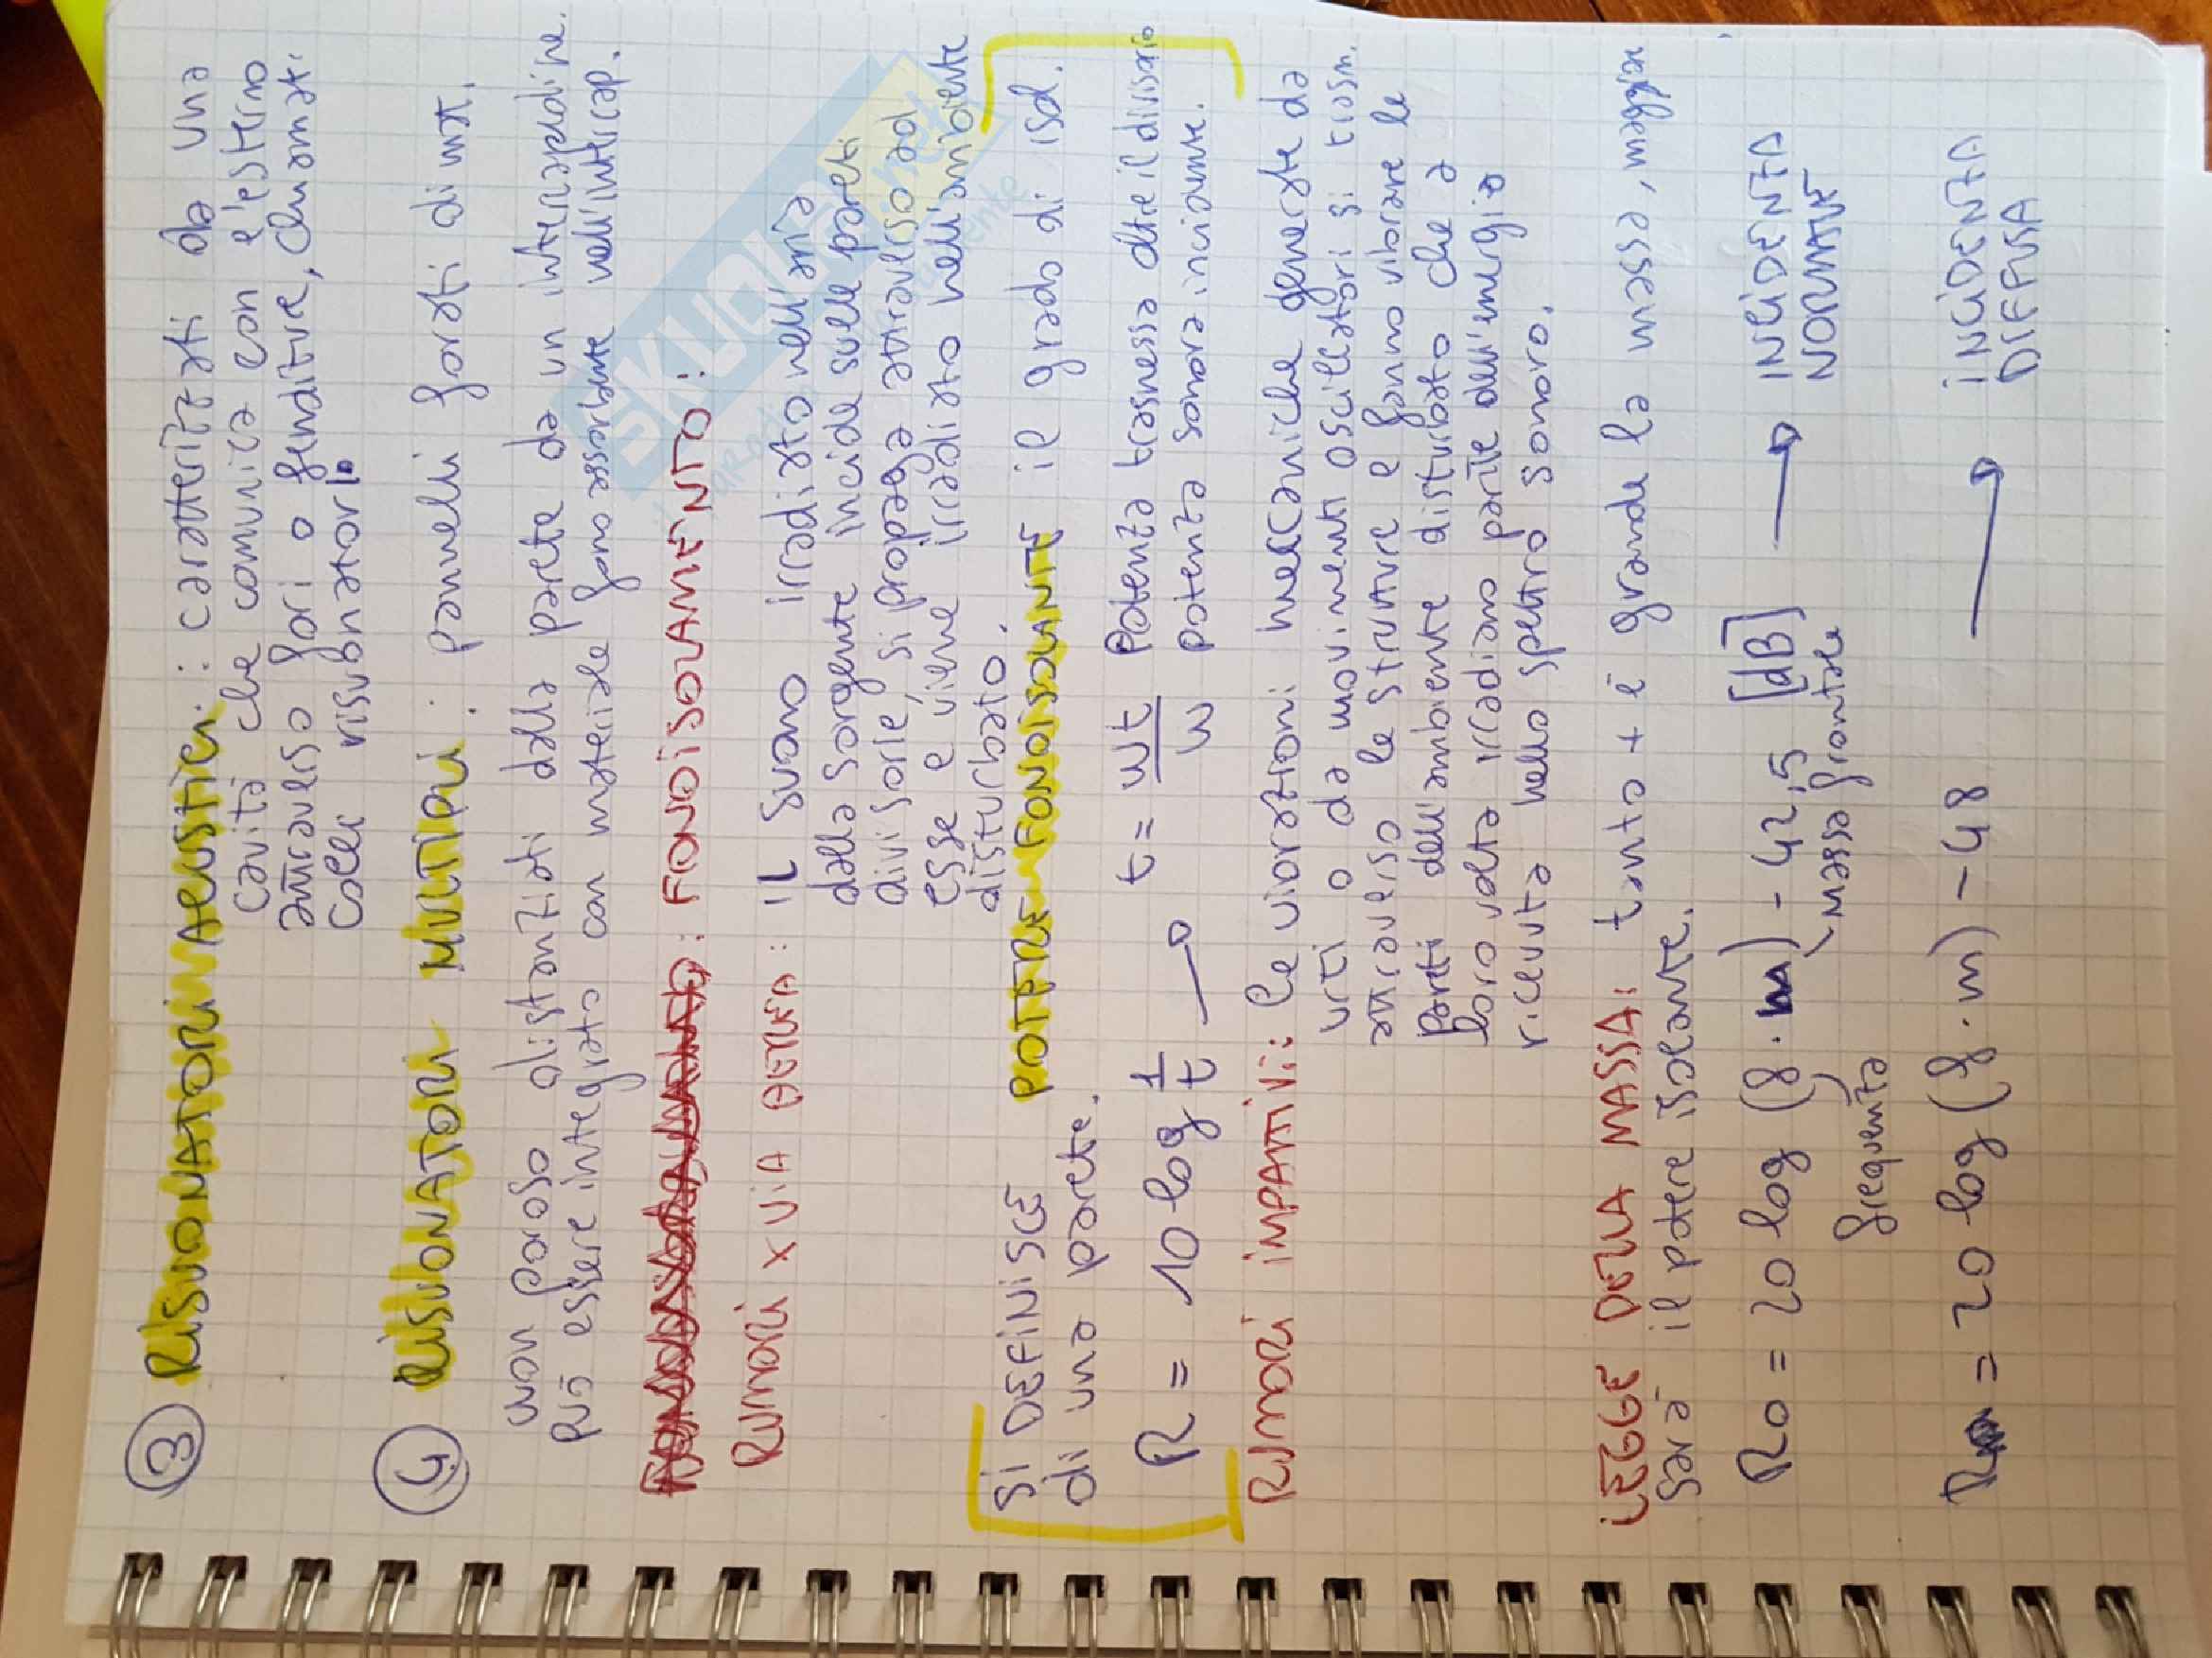 ③ RISUONATORI ACUSTICI : caratterizzati da una
cavità che comunica con l'esterno
attraverso fori o fenditure, chiamati
colli risuonatori.
④ RISUONATORI MULTIPLI : pannelli forati di mat.
non poroso distanziati dalla parete da un intercapedine.
può essere integrato con materiale fono assorbente nell'intercap.
: FONOISOLAMENTO :
RUMORI x VIA AEREA : IL suono irradiato nell'aria
dalla sorgente incide sulle pareti
divisorie, si propaga attraverso ad
esse e viene irradiato nell'ambiente
disturbato.
SI DEFINISCE POTERE FONOISOLANTE il grado di isol.
di una parete.
R = 10 log 1/t → t = wt/w potenza trasmessa oltre il divisorio
potenza sonora incidente.
RUMORI IMPATTIVI: le vibrazioni meccaniche generate da
urti o da movimenti oscillatori si trasm.
attraverso le strutture e fanno vibrare le
pareti dell'ambiente disturbato che a
loro volta irradiano parte dell'energia
ricevuta nello spettro sonoro.
LEGGE DELLA MASSA: tanto + è grande la massa, maggiore
sarà il potere isolante.
Ro = 20 log (f · m) - 42,5 [dB] → INCIDENTA
NORMALE
frequenza massa frontale
R = 20 log (f · m) - 48 → INCIDENTA
DIFFUSA
SKUOLA.net